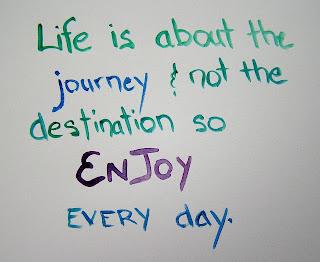 Life is about the
journey & not the
destination so
ENJOY
EVERY day.